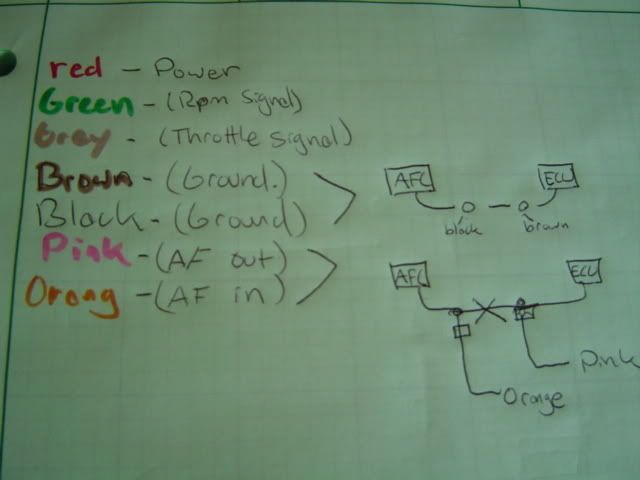 red - Power
Green - (Rpm Signal)
Grey - (Throttle Signal)
Brown - (Ground.)
Black - (Ground)
Pink - (AF out)
Orang - (AF in)
AFC ECU
black brown
AFC ECU
Pink
Orange